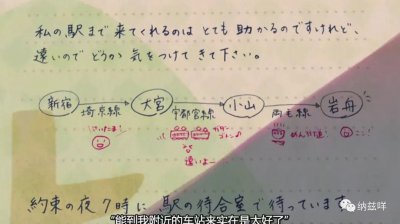 私の駅まで来てくれるのは とても 助かるのですけれど、
遠いので どうか 気をつけて きて下さい。
新宿 埼京線 大宮 宇都宮線 小山 両毛線 岩舟
さいたま!
ガタン ゴトン
遠いよー
めんけ道!
ここ!
約束の夜7時に 駅の待合室で待っています。
“能到我附近的车站来实在是太好了”
纳兹咩